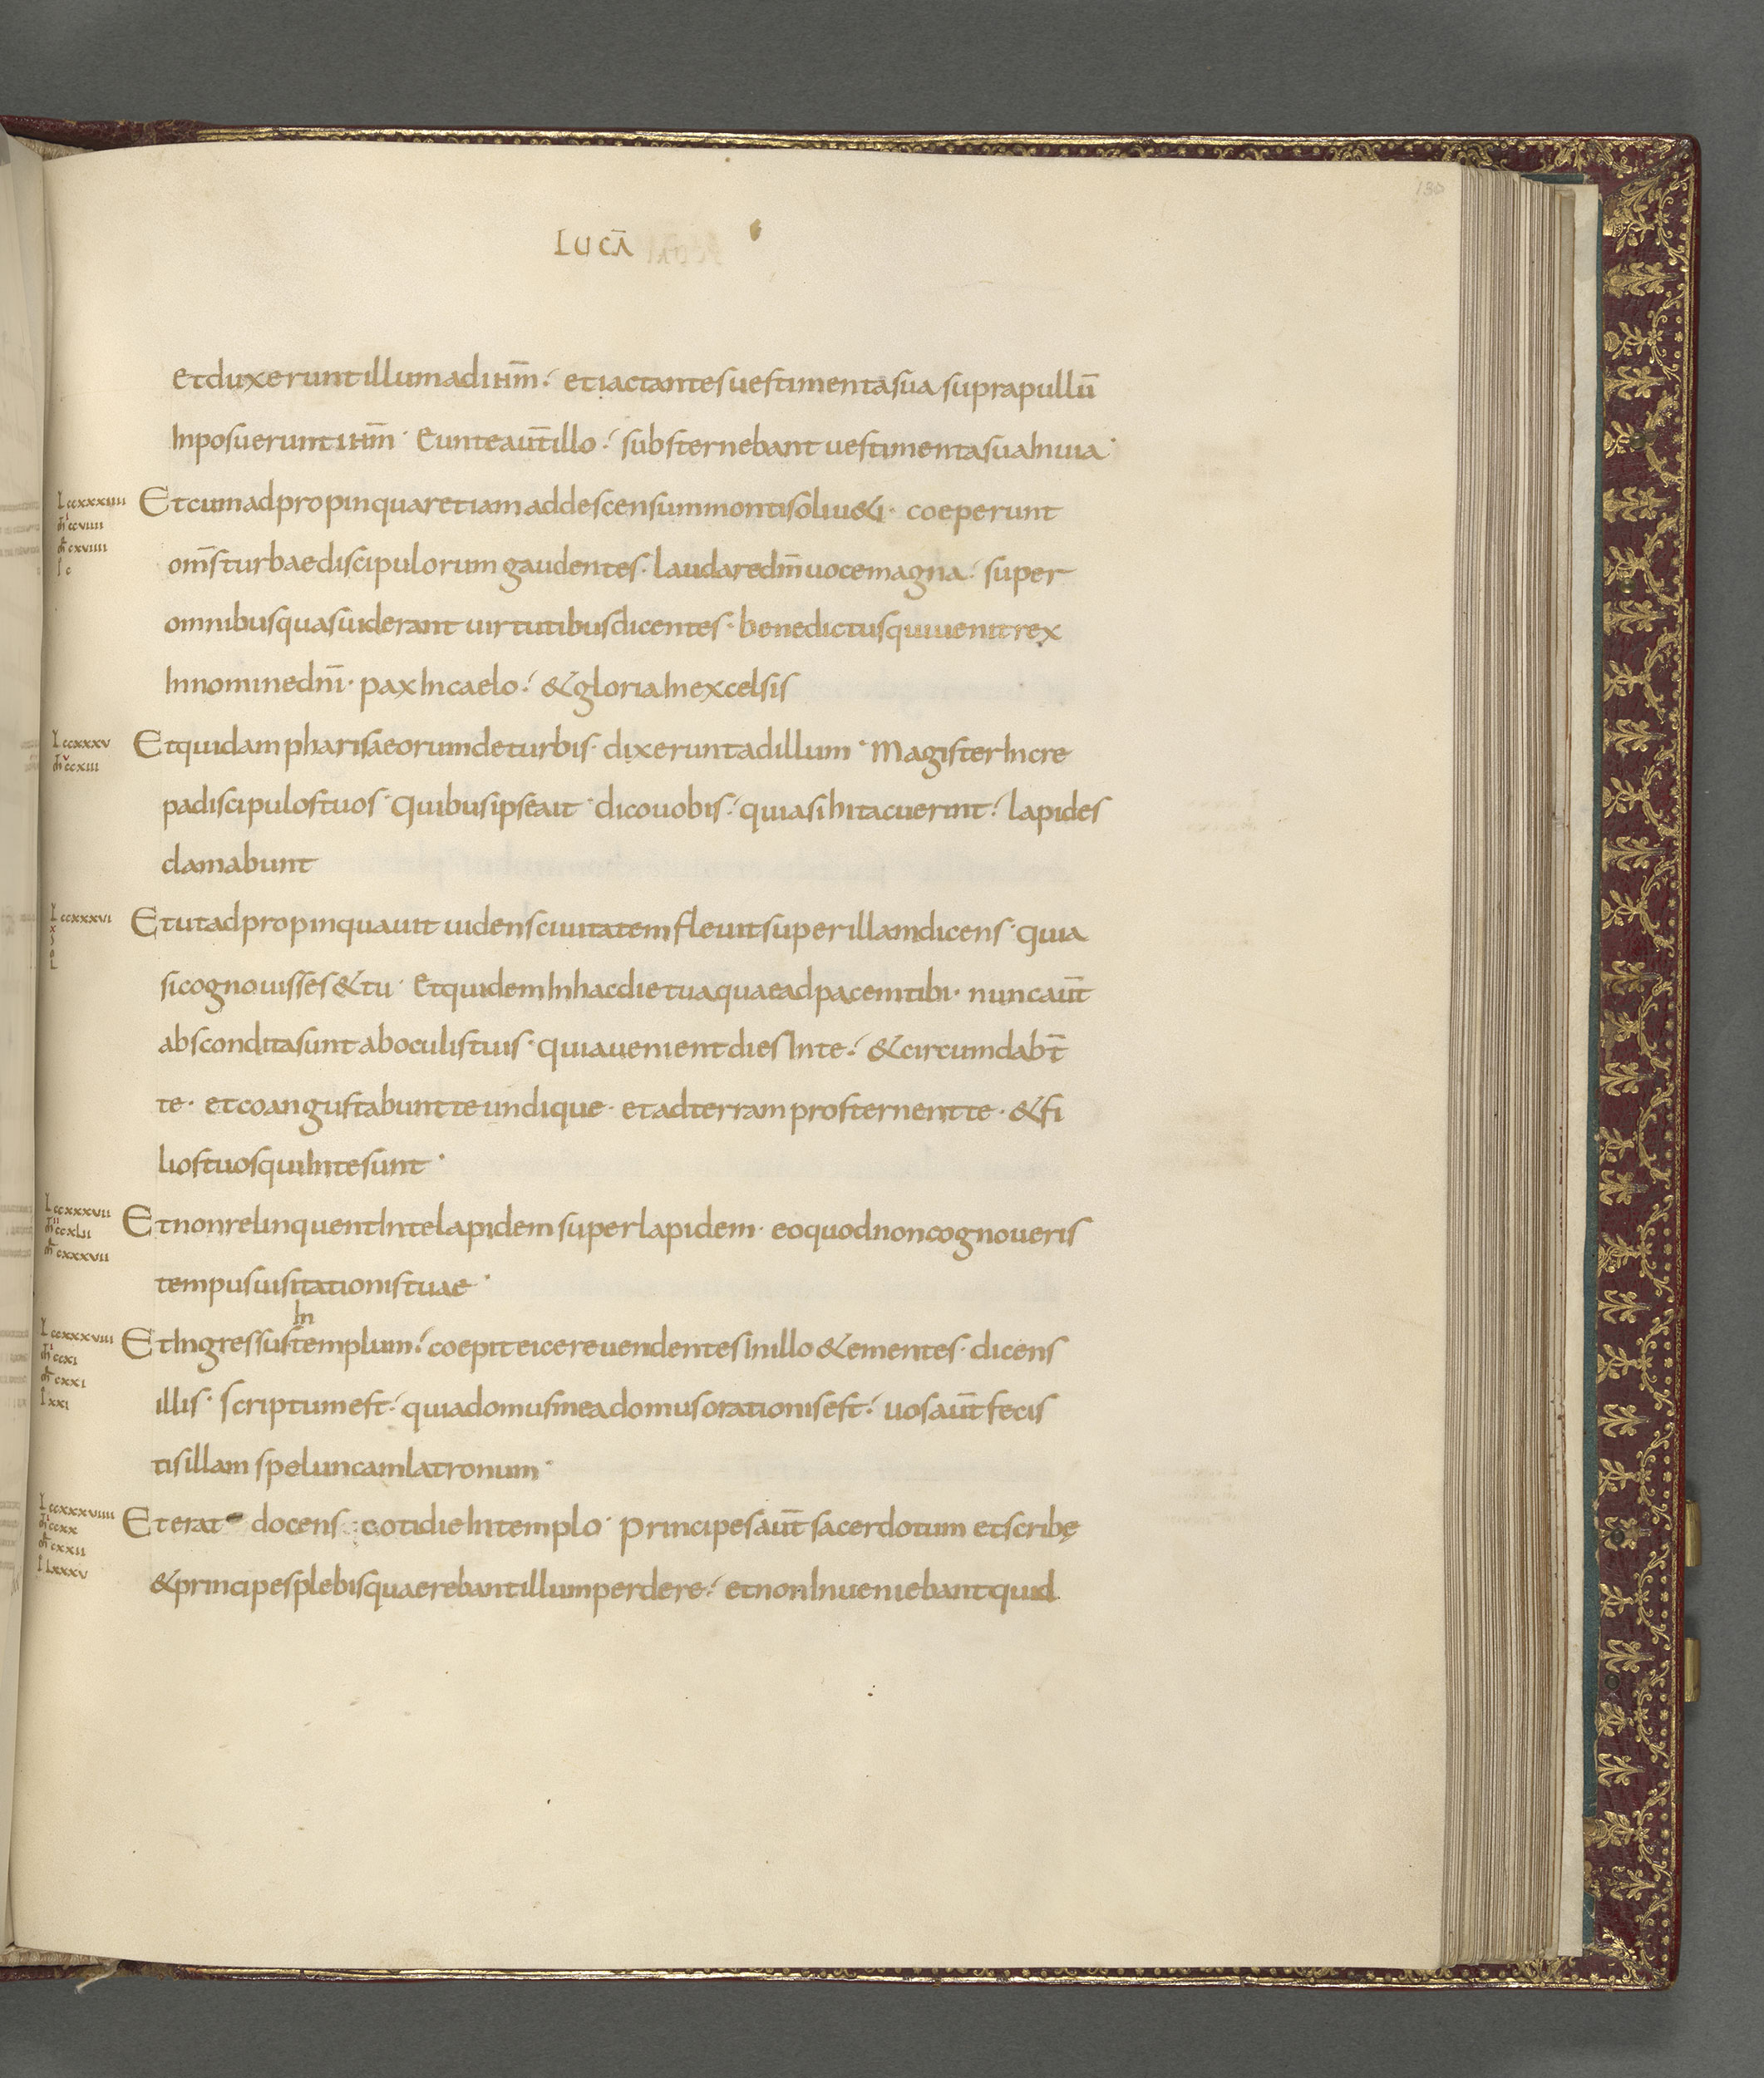 130
LUCĀ
et duxerunt illum ad ihm̄ . et iactantes uestimenta sua supra pullū
Inposuerunt ihm̄ . Eunte aūt illo . substernebant uestimenta sua In uia .
l ccxxxiiii Et cum adpropinquaret iam ad descensum montis oliu&i . coeperunt
m̄ ccviiii
m̄r cxviiii
i c
om̄s turbae discipulorum gaudentes . laudare dm̄ uoce magna . super
omnibus quas uiderant uirtutibus dicentes . benedictus qui uenit rex
In nomine dn̄i . pax In caelo . & gloria In excelsis
l ccxxxv Et quidam pharisaeorum de turbis . dixerunt ad illum . Magister Incre
m̄ ccxiii
pa discipulos tuos . Quibus ipse ait . dico uobis . quia si hi tacuerint . lapides
clamabunt
l ccxxxvi Et ut adpropinquauit uidens ciuitatem fleuit super illam dicens . quia
x sol
si cognouisses & tu . Et quidem In hac die tua quae ad pacem tibi . nunc aūt
abscondita sunt ab oculis tuis . Quia uenient dies In te . & circumdab̄t
te . et coangustabunt te undique . et ad terram prosternent te . & fi
lios tuos qui In te sunt .
l ccxxxvii Et non relinquent In te lapidem super lapidem . eo quod non cognoueris
m̄ ccxlii
m̄r cxxxvii
tempus uisitationis tuae .
In
l ccxxxviii Et Ingressus templum . coepit eicere uendentes In illo & ementes . dicens
m̄ ccxi
m̄r cxxi
i xxi
illis . scriptum est . quia domus mea domus orationis est . uos aūt fecis
tis illam speluncam latronum .
l ccxxxviiii Et erat docens . cotidie In templo . Principes aūt sacerdotum et scribę
m̄ ccxx
m̄r cxxii
i lxxxv
& principes plebis quaerebant illum perdere . et non Inueniebant quid